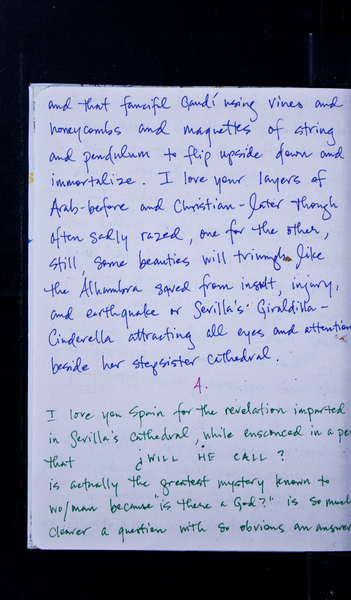 and that fanciful Gaudí using vines and
honeycombs and maquettes of string
and pendulum to flip upside down and
immortalize. I love your layers of
Arab-before and Christian-later though
often sadly razed, one for the other,
still, some beauties will triumph like
the Alhambra saved from insult, injury,
and earthquake or Sevilla's Giraldilla-
Cinderella attracting all eyes and attention
beside her stepsister cathedral.
4.
I love you Spain for the revelation imparted
in Sevilla's cathedral, while ensconced in a pe
that ¿WILL HE CALL?
is actually the greatest mystery known to
wo/man because "is there a God?" is so much
clearer a question with so obvious an answer